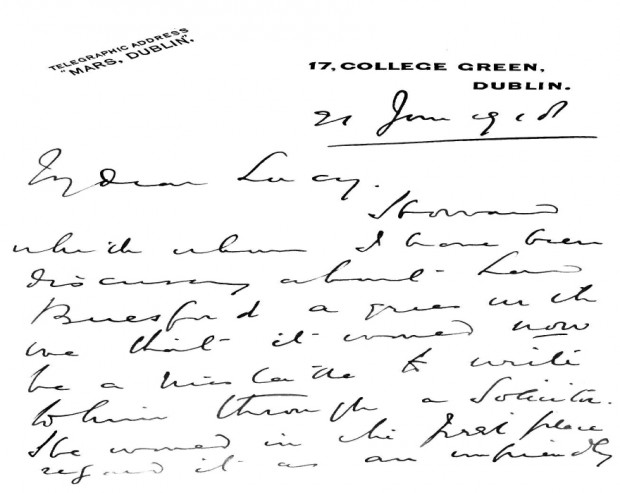 TELEGRAPHIC ADDRESS
"MARS, DUBLIN".
17, COLLEGE GREEN,
DUBLIN.
21
My dear Lucy.
which whom I have been
discussing about
Beresford agrees with
me that it would now
be a mistake to write
to him through a Solicitor.
would in the first place
regard it as an unfriendly